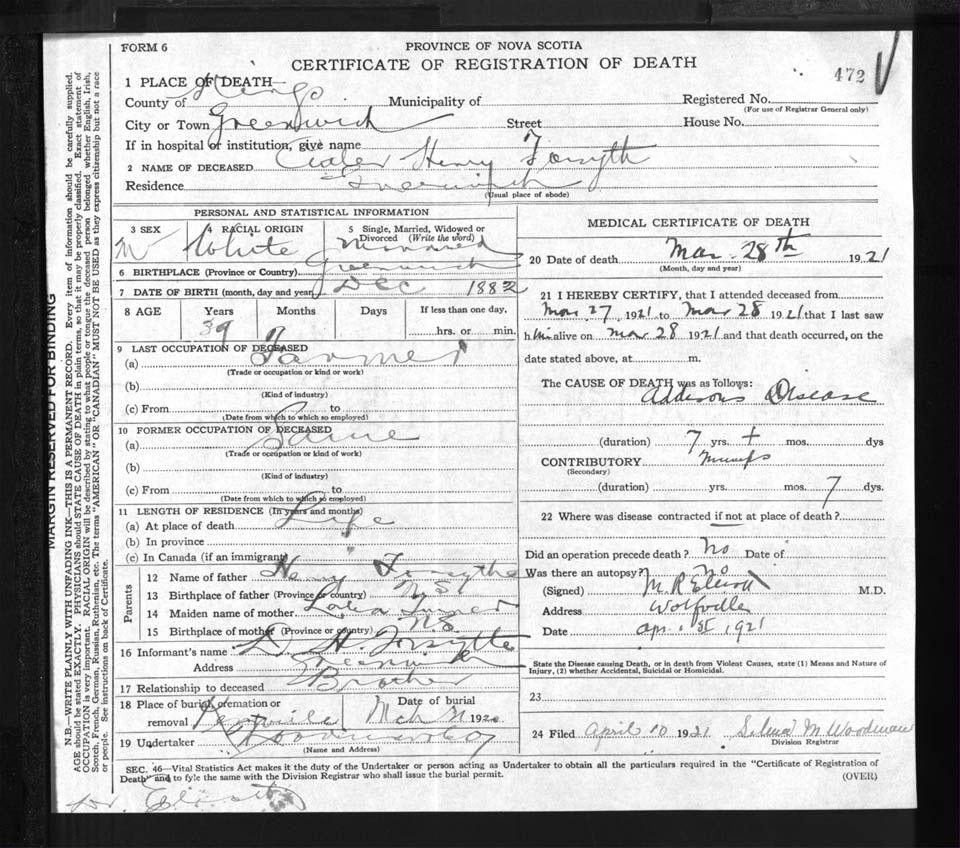 FORM 6
PROVINCE OF NOVA SCOTIA
CERTIFICATE OF REGISTRATION OF DEATH
472
1 PLACE OF DEATH—
County of Kings Municipality of Registered No.
(For use of Registrar General only)
City or Town Greenwich Street House No.
If in hospital or institution, give name
2 NAME OF DECEASED Henry Forsyth
Residence Greenwich
(Usual place of abode)
PERSONAL AND STATISTICAL INFORMATION
3 SEX 4 RACIAL ORIGIN 5 Single, Married, Widowed or Divorced (Write the word)
M White Married
6 BIRTHPLACE (Province or Country) Greenwich
7 DATE OF BIRTH (month, day and year) Dec 1882
8 AGE Years Months Days If less than one day,
39 hrs. or min.
9 LAST OCCUPATION OF DECEASED
(a) Farmer
(Trade or occupation or kind or work)
(b)
(Kind of industry)
(c) From to
(Date from which to which so employed)
10 FORMER OCCUPATION OF DECEASED
(a) Same
(Trade or occupation or kind of work)
(b)
(Kind of industry)
(c) From to
(Date from which to which so employed)
11 LENGTH OF RESIDENCE (In years and months)
(a) At place of death Life
(b) In province
(c) In Canada (if an immigrant)
Parents
12 Name of father Henry Forsythe
13 Birthplace of father (Province or country) N.S.
14 Maiden name of mother
15 Birthplace of mother (Province or country) N.S
16 Informant's name H. Forsythe
Address Greenwich
17 Relationship to deceased Brother
18 Place of burial, cremation or removal Kentville Date of burial Mch 31 192
19 Undertaker Woodman & Co
(Name and Address)
MEDICAL CERTIFICATE OF DEATH
20 Date of death Mar 28th 1921
(Month, day and year)
21 I HEREBY CERTIFY, that I attended deceased from
Mar 27, 1921 to Mar 28 1921 that I last saw
him alive on Mar 28 1921 and that death occurred, on the
date stated above, at m.
The CAUSE OF DEATH was as follows:
Addisons Disease
(duration) 7 yrs. + mos. dys
CONTRIBUTORY Mumps
(Secondary)
(duration) yrs. mos. 7 dys.
22 Where was disease contracted if not at place of death?
Did an operation precede death? No Date of
Was there an autopsy? No
(Signed) M. R. Elliott M.D.
Address Wolfville
Date Apr. 1st 1921
State the Disease causing Death, or in death from Violent Causes, state (1) Means and Nature of
Injury, (2) whether Accidental, Suicidal or Homicidal.
23
24 Filed April 10 1921 M Woodman
Division Registrar
SEC. 46—Vital Statistics Act makes it the duty of the Undertaker or person acting as Undertaker to obtain all the particulars required in the "Certificate of Registration of
Death" and to fyle the same with the Division Registrar who shall issue the burial permit.
(OVER)
MARGIN RESERVED FOR BINDING
N.B.—WRITE PLAINLY WITH UNFADING INK—THIS IS A PERMANENT RECORD. Every item of information should be carefully supplied.
AGE should be stated EXACTLY. PHYSICIANS should STATE CAUSE OF DEATH in plain terms, so that it may be properly classified. Exact statement of
OCCUPATION is very important. RACIAL ORIGIN will be described by stating to what people or tongue the deceased person belonged, whether English, Irish,
Scotch, French, German, Russian, Ruthenian, etc. The terms "AMERICAN" OR "CANADIAN" MUST NOT BE USED as they express citizenship but not a race
or people. See instructions on back of Certificate.